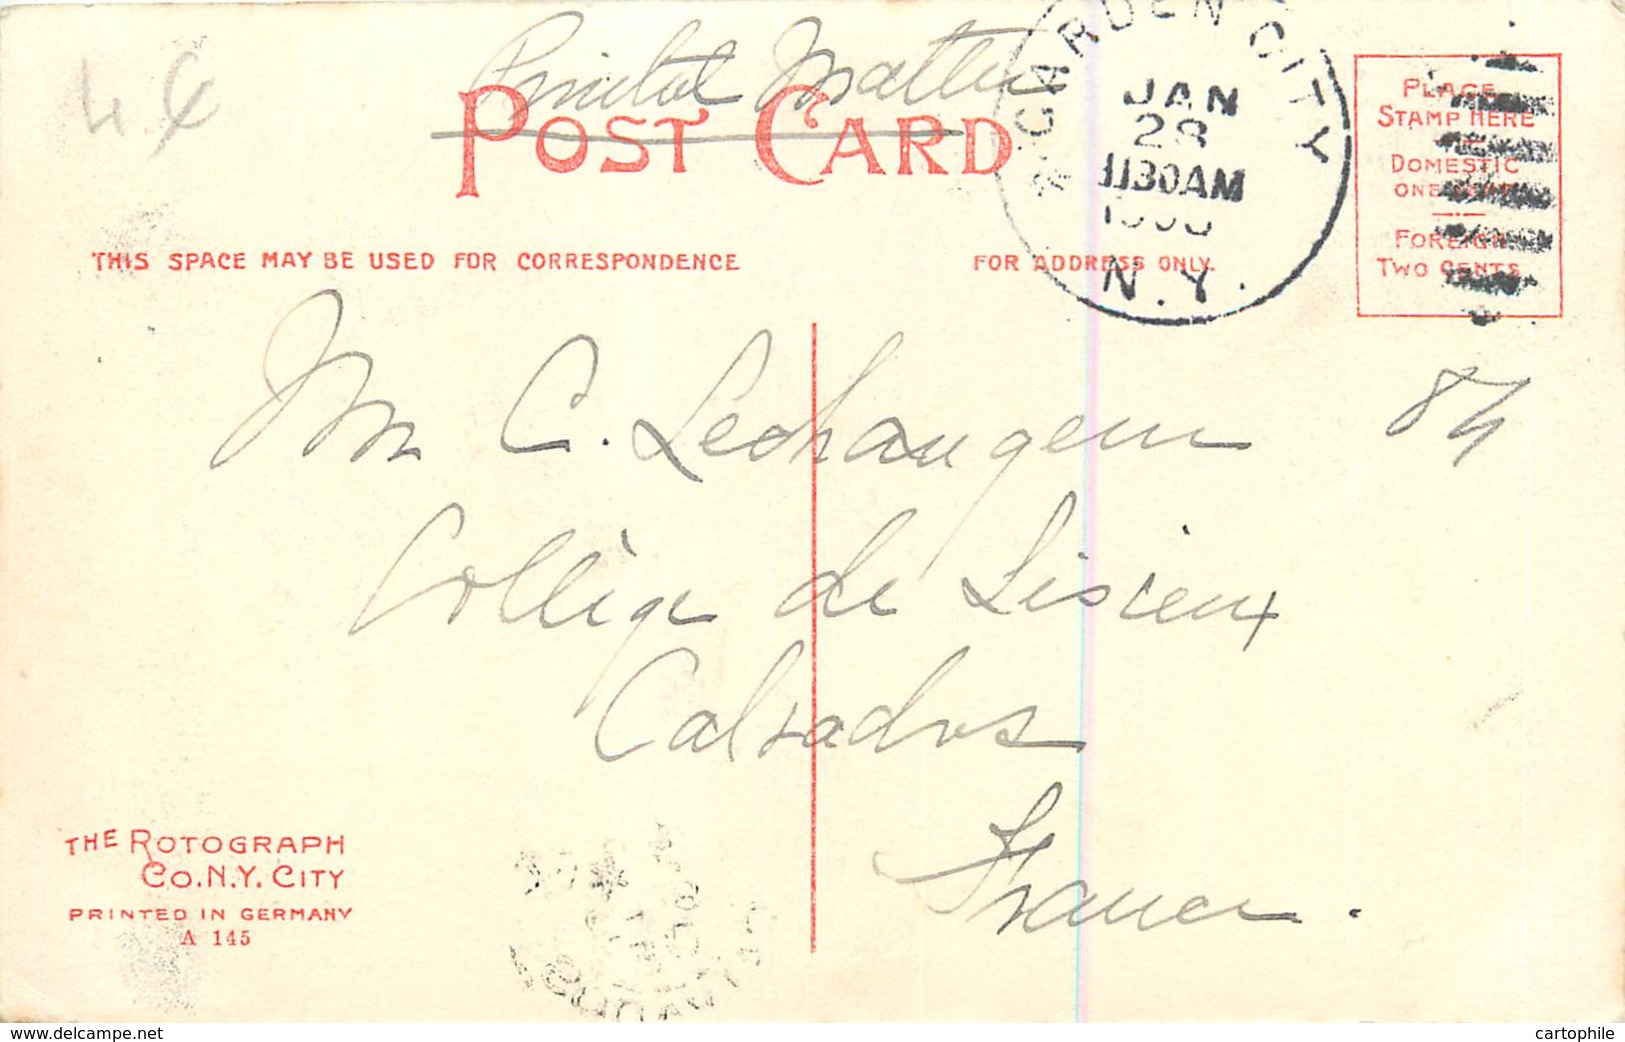 4 €
Printed Matter
POST CARD
GARDEN CITY
JAN
28
1130AM
N.Y.
PLACE
STAMP HERE
DOMESTIC
ONE
FOREIGN
TWO CENTS
THIS SPACE MAY BE USED FOR CORRESPONDENCE
FOR ADDRESS ONLY.
C. Lechangeur
84
Collège de Lisieux
Calvados
France.
THE ROTOGRAPH
CO. N.Y. CITY
PRINTED IN GERMANY
A 145
www.delcampe.net
cartophile